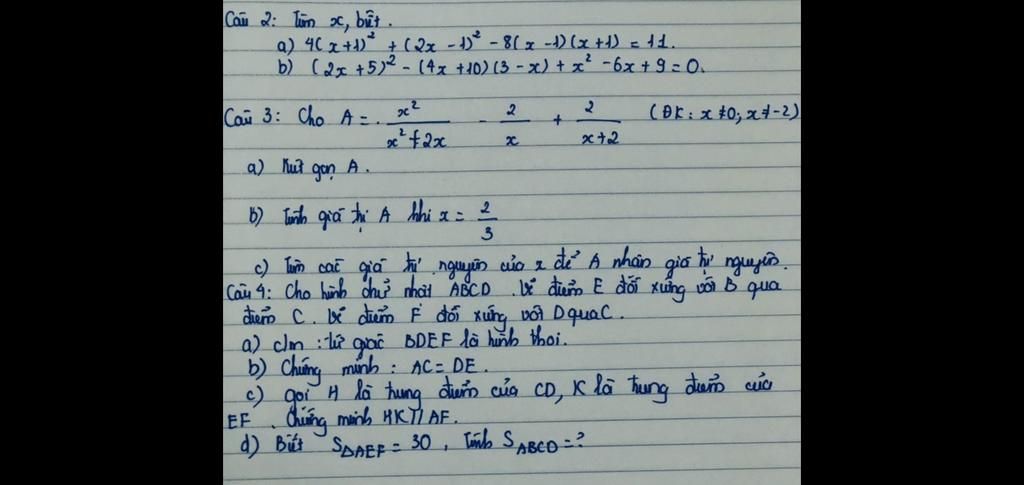 Câu 2: Tìm x, biết.
a) 4(x+1)² + (2x-1)² - 8(x-1)(x+1) = 11.
b) (2x+5)² - (4x+10)(3-x) + x² - 6x + 9 = 0.
Câu 3: Cho A = x²/(x²+2x) - 2/x + 2/(x+2) (ĐK: x≠0; x≠-2)
a) Rút gọn A.
b) Tính giá trị A khi x = 2/3
c) Tìm các giá trị nguyên của x để A nhận giá trị nguyên.
Câu 4: Cho hình chữ nhật ABCD. Vẽ điểm E đối xứng với B qua
điểm C. Vẽ điểm F đối xứng với D qua C.
a) c/m: tứ giác BDEF là hình thoi.
b) Chứng minh: AC = DE.
c) gọi H là trung điểm của CD, K là trung điểm của
EF. Chứng minh HK // AF.
d) Biết SΔAEF = 30, Tính SABCD = ?